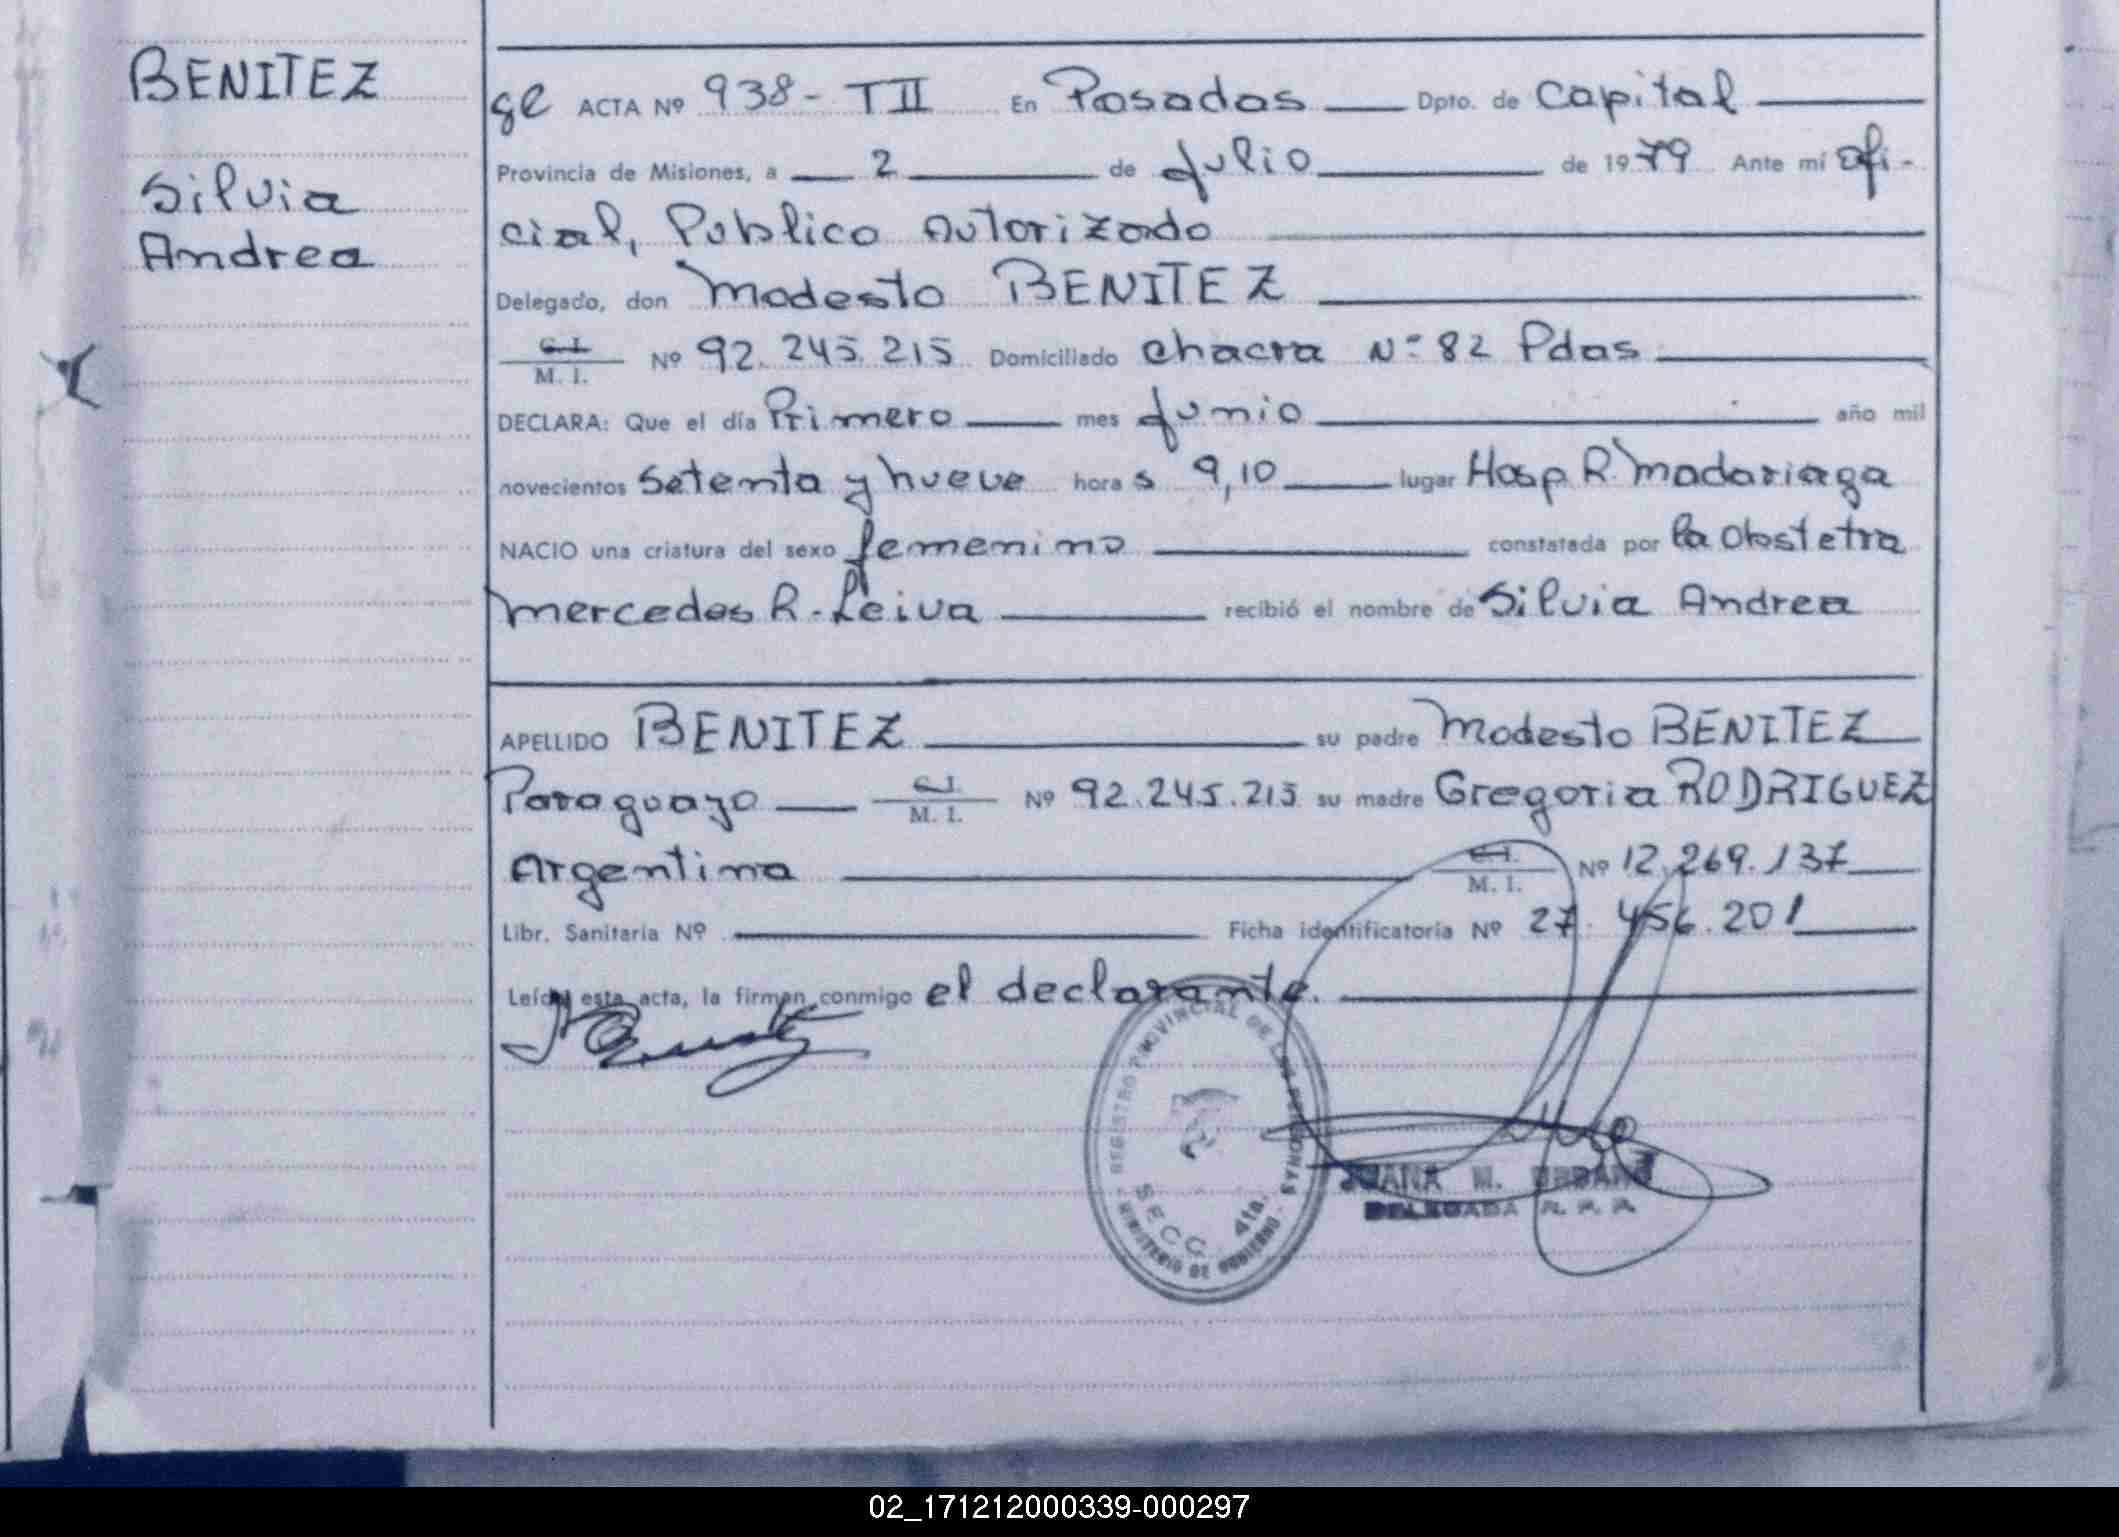 BENITEZ
Silvia
Andrea
ge ACTA Nº 938 - TII En Posadas Dpto. de Capital
Provincia de Misiones, a 2 de Julio de 1979 Ante mí ofi-
cial, Publico Autorizado
Delegado, don Modesto BENITEZ
C. I.
M. I. Nº 92.245.215 Domiciliado chacra Nº 82 Pdas
DECLARA: Que el día Primero mes Junio año mil
novecientos setenta y nueve hora s 9,10 lugar Hosp R. Madariaga
NACIO una criatura del sexo femenino constatada por la Obstetra
Mercedes R. Leiva recibió el nombre de Silvia Andrea
APELLIDO BENITEZ su padre Modesto BENITEZ
Paraguayo C. I. M. I. Nº 92.245.215 su madre Gregoria RODRIGUEZ
Argentina C. I. M. I. Nº 12.269.137
Libr. Sanitaria Nº Ficha identificatoria Nº 27.456.201
Leída esta acta, la firman conmigo el declarante.
REGISTRO PROVINCIAL DE LAS PERSONAS
SECC. 4ta.
MINISTERIO DE GOBIERNO
JUANA M.
DELEGADA R. P. P.
02_171212000339-000297